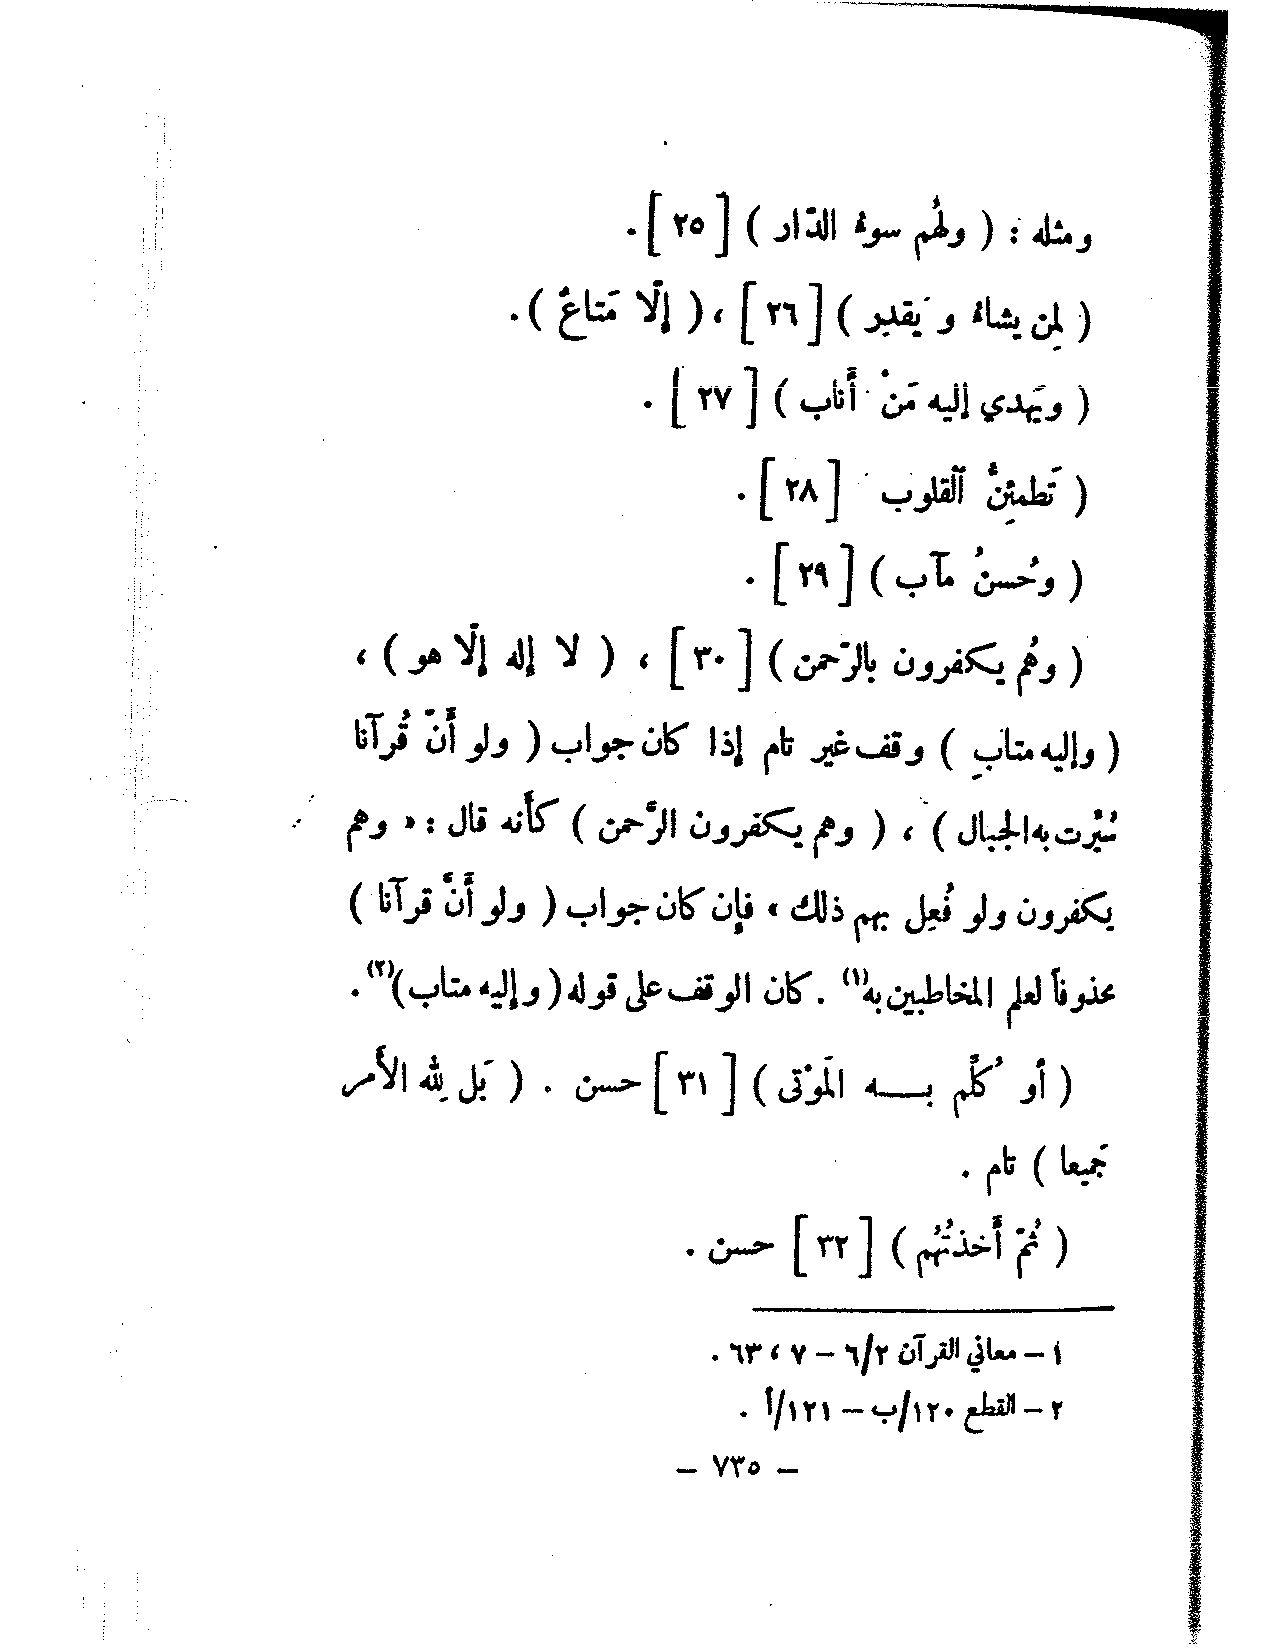 ومثله : ( ولهُم سوءُ الدّار ) [ ٢٥ ] .
( لِمن يشاءُ وَيَقدِر ) [ ٢٦ ] ، ( إلّا مَتاعٌ ) .
( ويَهدي إليه مَنْ أَناب ) [ ٢٧ ] .
( تَطمئِنُّ ٱلقلوب [ ٢٨ ] .
( وحُسنُ مآب ) [ ٢٩ ] .
( وهُم يكفرون بالرّحمن ) [ ٣٠ ] ، ( لا إله إلّا هو ) ،
( وإليه متابِ ) وقف غير تام إذا كان جواب ( ولو أَنّ قُرآنا
سُيِّرت به الجبال ) ، ( وهم يكفرون الرَّحمن ) كأنه قال : « وهم
يكفرون ولو فُعِل بهم ذلك » فإن كان جواب ( ولو أَنَّ قرآنا )
محذوفاً لعلم المخاطبين به(١) . كان الوقف على قوله ( وإليه متاب)(٢) .
( أو كُلِّم بــه المَوْتى ) [ ٣١ ] حسن . ( بَل لِله الأَمر
جَميعا ) تام .
( ثُمّ أَخذتُهُم ) [ ٣٢ ] حسن .
١ – معاني القرآن ٦/٢ – ٧ ، ٦٣ .
٢ – القطع ١٢٠/ب – ١٢١/أ .
– ٧٣٥ –